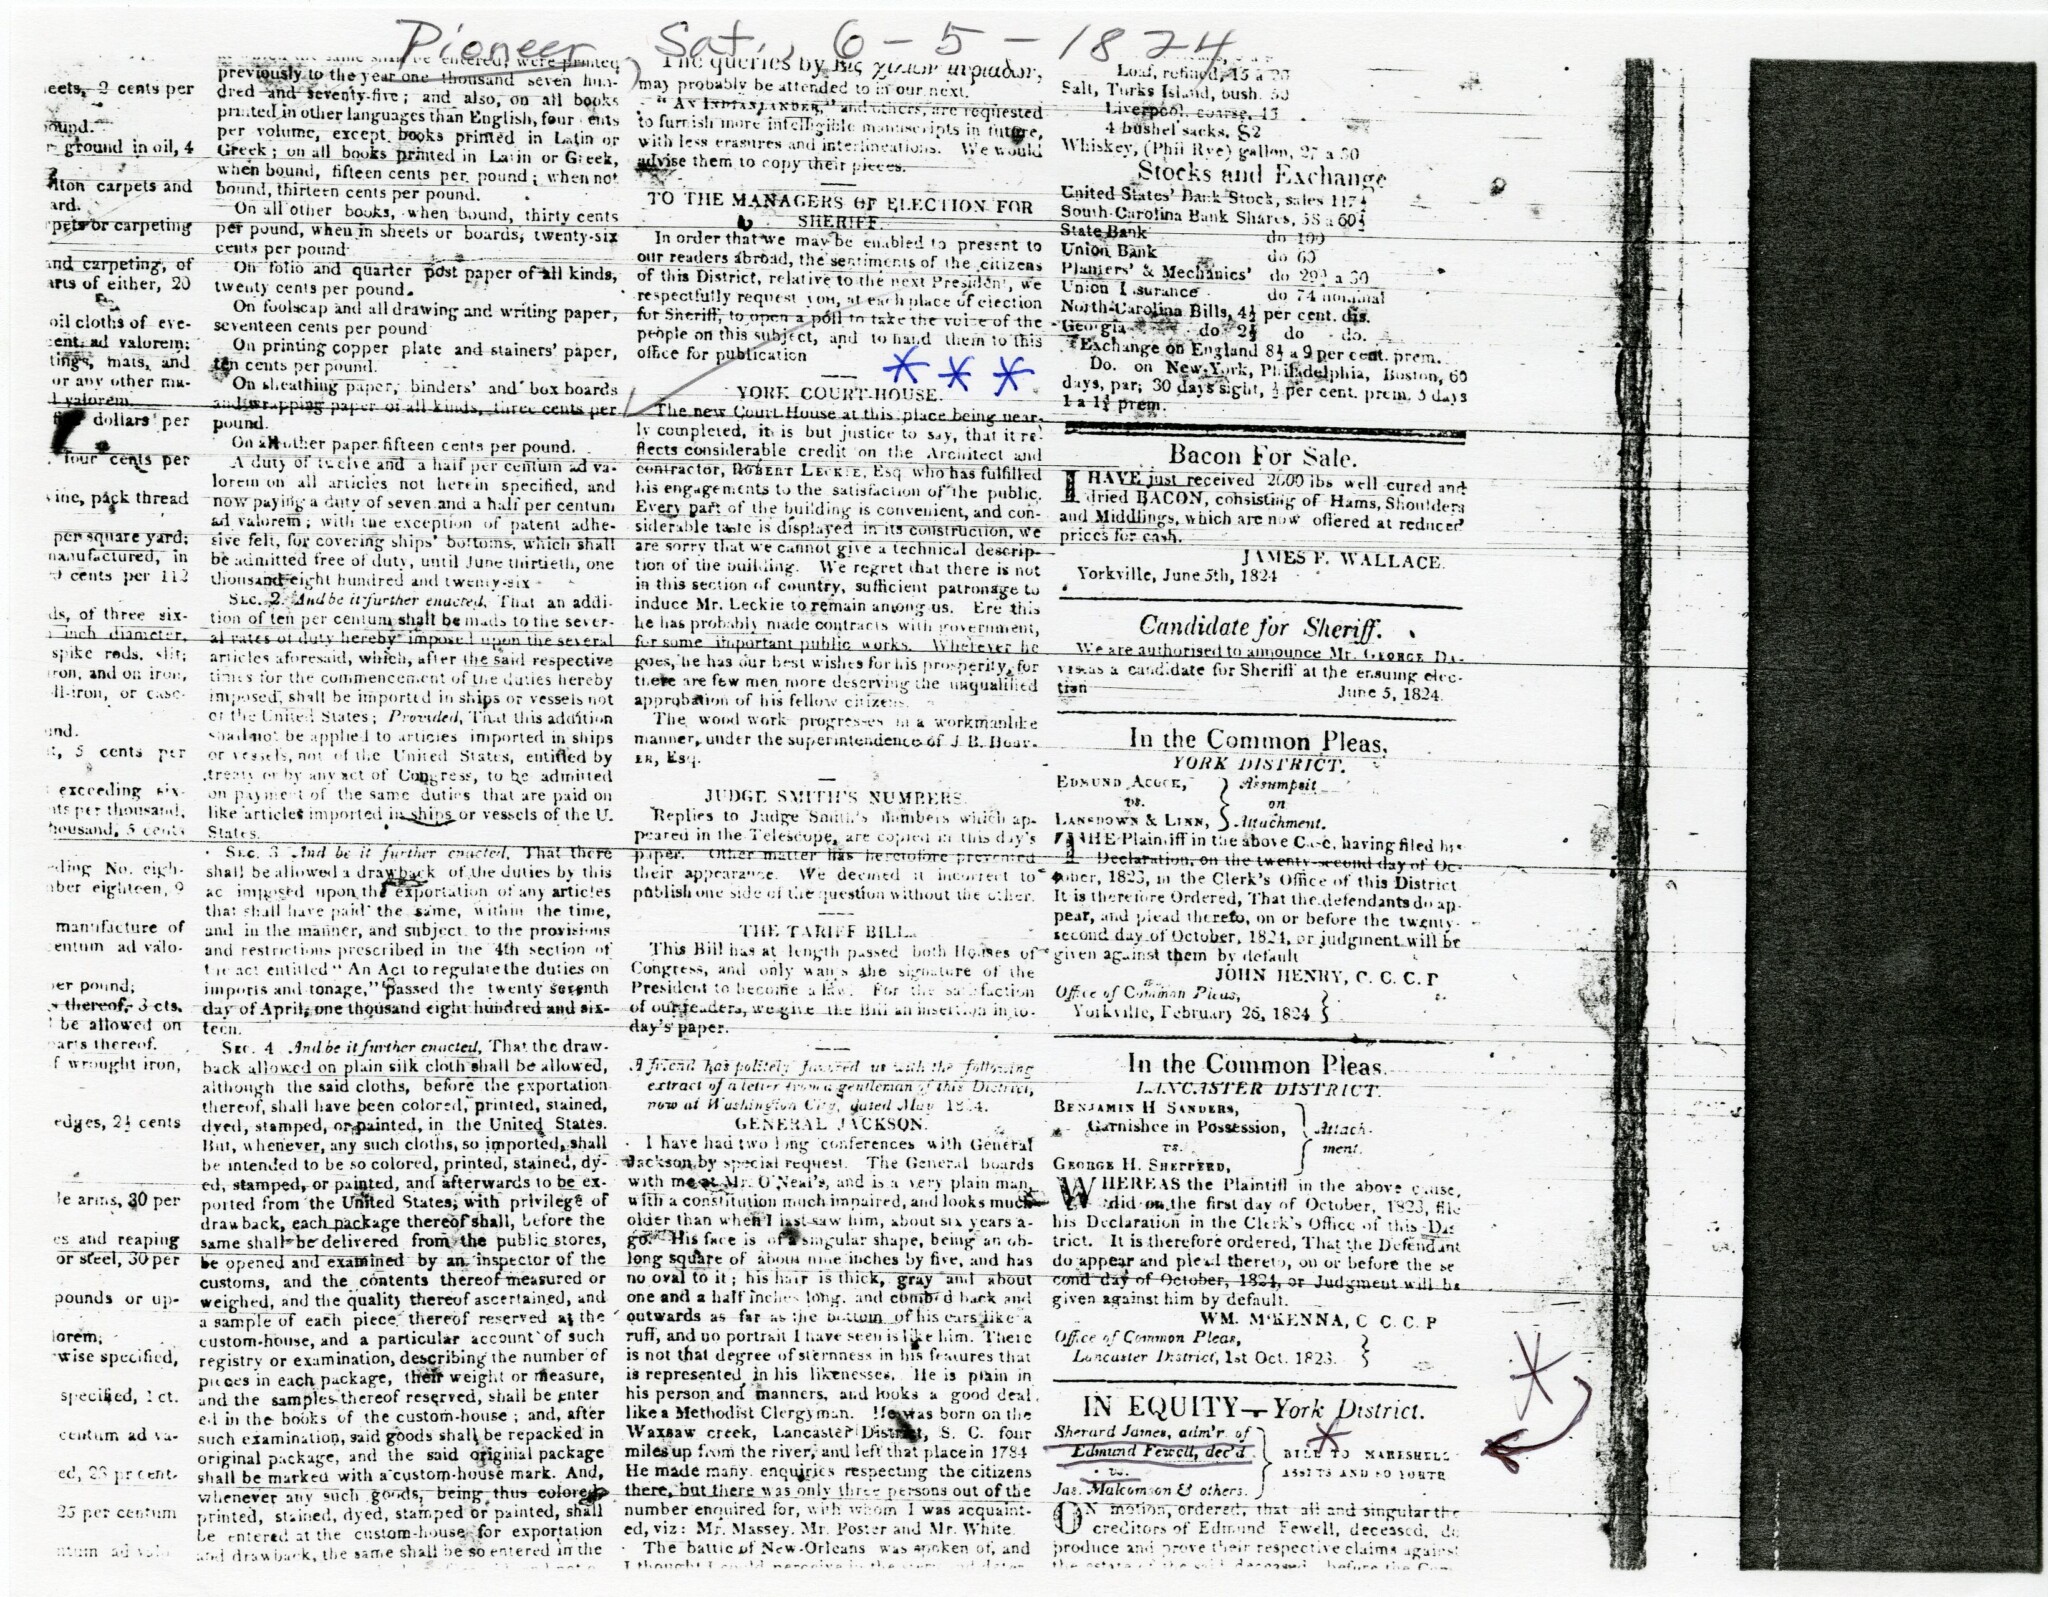 Pioneer Sat. 6-5-1824
eets, 2 cents per
ound.
ground in oil, 4
lton carpets and
ard.
rpets or carpeting
and carpeting, of
arts of either, 20
oil cloths of eve-
cent. ad valorem;
tings, mats, and
or any other ma-
d valorem.
dollars per
four cents per
vine, pack thread
per square yard;
manufactured, in
cents per 112
ds, of three six-
inch diameter,
spike rods, slit;
iron, and on iron,
ll-iron, or case-
und.
t, 5 cents per
exceeding six-
nts per thousand,
housand, 5 cents
eding No. eigh-
ber eighteen, 9
manufacture of
entum ad valo-
per pound;
thereof, 3 cts.
be allowed on
parts thereof.
f wrought iron,
edges, 2½ cents
le arms, 30 per
es and reaping
or steel, 30 per
pounds or up-
lorem;
wise specified,
specified, 1 ct.
centum ad va-
25 per centum
same shall be entered, were printed
previously to the year one thousand seven hun-
dred and seventy-five; and also, on all books
printed in other languages than English, four cents
per volume, except books printed in Latin or
Greek; on all books printed in Latin or Greek,
when bound, fifteen cents per pound; when not
bound, thirteen cents per pound.
On all other books, when bound, thirty cents
per pound, when in sheets or boards, twenty-six
cents per pound
On folio and quarter post paper of all kinds,
twenty cents per pound.
On foolscap and all drawing and writing paper,
seventeen cents per pound
On printing copper plate and stainers' paper,
ten cents per pound.
On sheathing paper, binders' and box boards
and wrapping paper of all kinds, three cents per
pound.
On all other paper fifteen cents per pound.
A duty of twelve and a half per centum ad va-
lorem on all articles not herein specified, and
now paying a duty of seven and a half per centum
ad valorem; with the exception of patent adhe-
sive felt, for covering ships' bottoms, which shall
be admitted free of duty, until June thirtieth, one
thousand eight hundred and twenty-six
SEC. 2. And be it further enacted, That an addi-
tion of ten per centum shall be made to the sever-
al rates of duty hereby imposed upon the several
articles aforesaid, which, after the said respective
times for the commencement of the duties hereby
imposed, shall be imported in ships or vessels not
of the United States; Provided, That this addition
shall not be applied to articles imported in ships
or vessels, not of the United States, entitled by
treaty or by any act of Congress, to be admitted
on payment of the same duties that are paid on
like articles imported in ships or vessels of the U.
States.
SEC. 3 And be it further enacted, That there
shall be allowed a drawback of the duties by this
ac imposed upon the exportation of any articles
that shall have paid the same, within the time,
and in the manner, and subject to the provisions
and restrictions prescribed in the 4th section of
the act entitled "An Act to regulate the duties on
imports and tonage," passed the twenty seventh
day of April, one thousand eight hundred and six-
teen.
SEC. 4 And be it further enacted, That the draw-
back allowed on plain silk cloth shall be allowed,
although the said cloths, before the exportation
thereof, shall have been colored, printed, stained,
dyed, stamped, or painted, in the United States.
But, whenever, any such cloths, so imported, shall
be intended to be so colored, printed, stained, dy-
ed, stamped, or painted, and afterwards to be ex-
ported from the United States, with privilege of
drawback, each package thereof shall, before the
same shall be delivered from the public stores,
be opened and examined by an inspector of the
customs, and the contents thereof measured or
weighed, and the quality thereof ascertained, and
a sample of each piece thereof reserved at the
custom-house, and a particular account of such
registry or examination, describing the number of
pieces in each package, their weight or measure,
and the samples thereof reserved, shall be enter
ed in the books of the custom-house; and, after
such examination, said goods shall be repacked in
original package, and the said original package
shall be marked with a custom-house mark. And,
whenever any such goods, being thus colored,
printed, stained, dyed, stamped or painted, shall
be entered at the custom-house for exportation
and drawback, the same shall be so entered in the
The queries by
may probably be attended to in our next.
"AN INDIANLANDER," and others, are requested
to furnish more intelligible manuscripts in future,
with less erasures and interlineations. We would
advise them to copy their pieces.
TO THE MANAGERS OF ELECTION FOR
SHERIFF.
In order that we may be enabled to present to
our readers abroad, the sentiments of the citizens
of this District, relative to the next President, we
respectfully request you, at each place of election
for Sheriff, to open a poll to take the voice of the
people on this subject, and to hand them to this
office for publication
YORK COURT-HOUSE.
The new Court House at this place being near-
ly completed, it is but justice to say, that it re-
flects considerable credit on the Architect and
contractor, ROBERT LECKIE, Esq. who has fulfilled
his engagements to the satisfaction of the public.
Every part of the building is convenient, and con-
siderable taste is displayed in its construction, we
are sorry that we cannot give a technical descrip-
tion of the building. We regret that there is not
in this section of country, sufficient patronage to
induce Mr. Leckie to remain among us. Ere this
he has probably made contracts with government,
for some important public works. Wherever he
goes, he has our best wishes for his prosperity, for
there are few men more deserving the unqualified
approbation of his fellow citizens.
The wood work progresses in a workmanlike
manner, under the superintendence of J. B. HOOV-
ER, Esq.
JUDGE SMITH'S NUMBERS.
Replies to Judge Smith's numbers which ap-
peared in the Telescope, are copied in this day's
paper. Other matter has heretofore prevented
their appearance. We deemed it incorrect to
publish one side of the question without the other.
THE TARIFF BILL.
This Bill has at length passed both Houses of
Congress, and only wants the signature of the
President to become a law. For the satisfaction
of our readers, we give the Bill an insertion in to-
day's paper.
A friend has politely favored us with the following
extract of a letter from a gentleman of this District,
now at Washington City, dated May 1824.
GENERAL JACKSON.
I have had two long conferences with General
Jackson by special request. The General boards
with me at Mr. O'Neal's, and is a very plain man,
with a constitution much impaired, and looks much
older than when I last saw him, about six years a-
go. His face is of a singular shape, being an ob-
long square of about nine inches by five, and has
no oval to it; his hair is thick, gray and about
one and a half inches long, and comb'd back and
outwards as far as the bottom of his ears like a
ruff, and no portrait I have seen is like him. There
is not that degree of sternness in his features that
is represented in his likenesses. He is plain in
his person and manners, and looks a good deal
like a Methodist Clergyman. He was born on the
Waxsaw creek, Lancaster District, S. C. four
miles up from the river, and left that place in 1784
He made many enquiries respecting the citizens
there, but there was only three persons out of the
number enquired for, with whom I was acquaint-
ed, viz: Mr. Massey, Mr. Foster and Mr. White.
The battle of New-Orleans was spoken of, and
I thought I could perceive
Loaf, refined, 15 a 20
Salt, Turks Island, bush. 50
Liverpool, coarse, 45
4 bushel sacks, $2
Whiskey, (Phil Rye) gallon, 27 a 30
Stocks and Exchange
United States' Bank Stock, sales 117½
South-Carolina Bank Shares, 58 a 60½
State Bank do 100
Union Bank do 60
Planters' & Mechanics' do 29½ a 30
Union Insurance do 74 nominal
North-Carolina Bills, 4½ per cent. dis.
Georgia do 2½ do do.
Exchange on England 8½ a 9 per cent. prem.
Do. on New-York, Philadelphia, Boston, 60
days, par; 30 days sight, ½ per cent. prem. 5 days
1 a 1½ prem.
Bacon For Sale.
I HAVE just received 2600 lbs well cured and
dried BACON, consisting of Hams, Shoulders
and Middlings, which are now offered at reduced
prices for cash.
JAMES F. WALLACE.
Yorkville, June 5th, 1824
Candidate for Sheriff.
We are authorised to announce Mr. GEORGE DA-
VIS as a candidate for Sheriff at the ensuing elec-
tion June 5, 1824.
In the Common Pleas,
YORK DISTRICT.
EDMUND ACOCK, Assumpsit
vs. on
LANSDOWN & LINN, Attachment.
THE Plaintiff in the above Case, having filed his
Declaration, on the twenty-second day of Oc-
tober, 1823, in the Clerk's Office of this District
It is therefore Ordered, That the defendants do ap-
pear, and plead thereto, on or before the twenty-
second day of October, 1824, or judgment will be
given against them by default
JOHN HENRY, C. C. C. P
Office of Common Pleas,
Yorkville, February 26, 1824
In the Common Pleas.
LANCASTER DISTRICT.
BENJAMIN H SANDERS,
Garnishee in Possession, Attach-
vs. ment.
GEORGE H. SHEPPERD,
WHEREAS the Plaintiff in the above cause,
did on the first day of October, 1823, file
his Declaration in the Clerk's Office of this Dis
trict. It is therefore ordered, That the Defendant
do appear and plead thereto, on or before the se
cond day of October, 1824, or Judgment will be
given against him by default.
WM. M'KENNA, C C. C. P
Office of Common Pleas,
Lancaster District, 1st Oct. 1823.
IN EQUITY—York District.
Sherard James, adm'r of
Edmund Fewell, dec'd. BILL TO MARSHELL
vs. ASSETS AND SO FORTH
Jas. Malcomson & others.
ON motion, ordered, that all and singular the
creditors of Edmund Fewell, deceased, do
produce and prove their respective claims against
the estate of the said deceased, before the Com